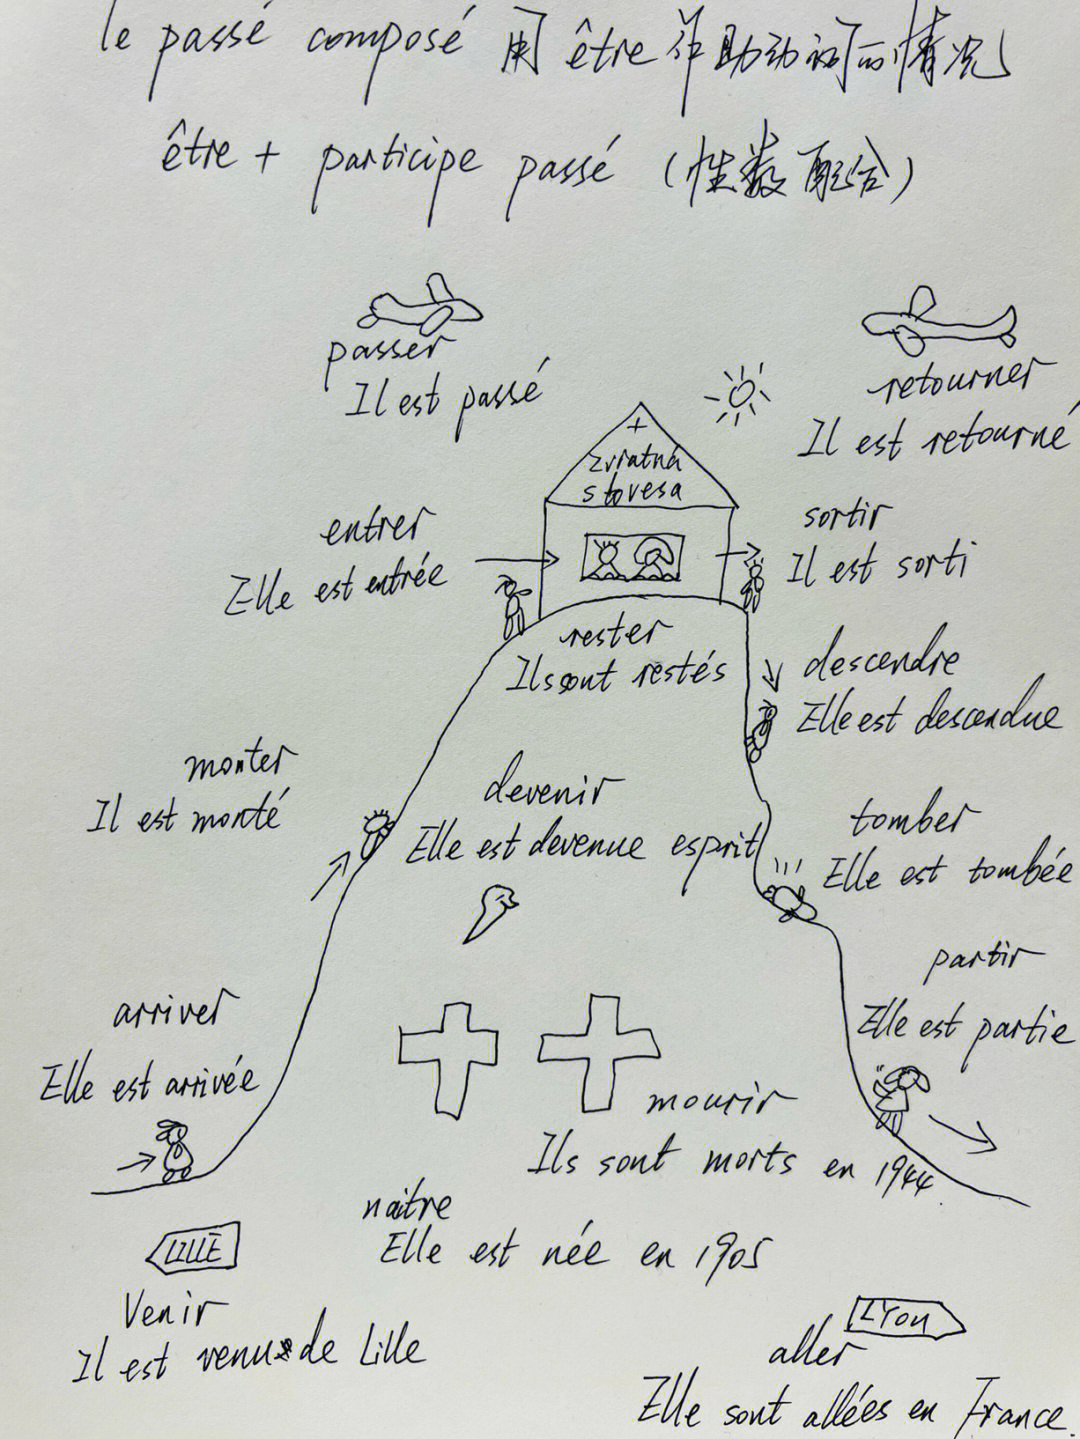 le passé composé 用 être 作助动词的情况
être + participe passé (性数配合)
passer
Il est passé
retourner
Il est retourné
+
zvratná
slovesa
entrer
Elle est entrée
sortir
Il est sorti
rester
Ils sont restés
descendre
Elle est descendue
monter
Il est monté
devenir
Elle est devenue esprit
tomber
Elle est tombée
partir
Elle est partie
arriver
Elle est arrivée
mourir
Ils sont morts en 1944
naître
Elle est née en 1905
LILLE
Venir
Il est venu de Lille
LYon
aller
Elle sont allées en France.